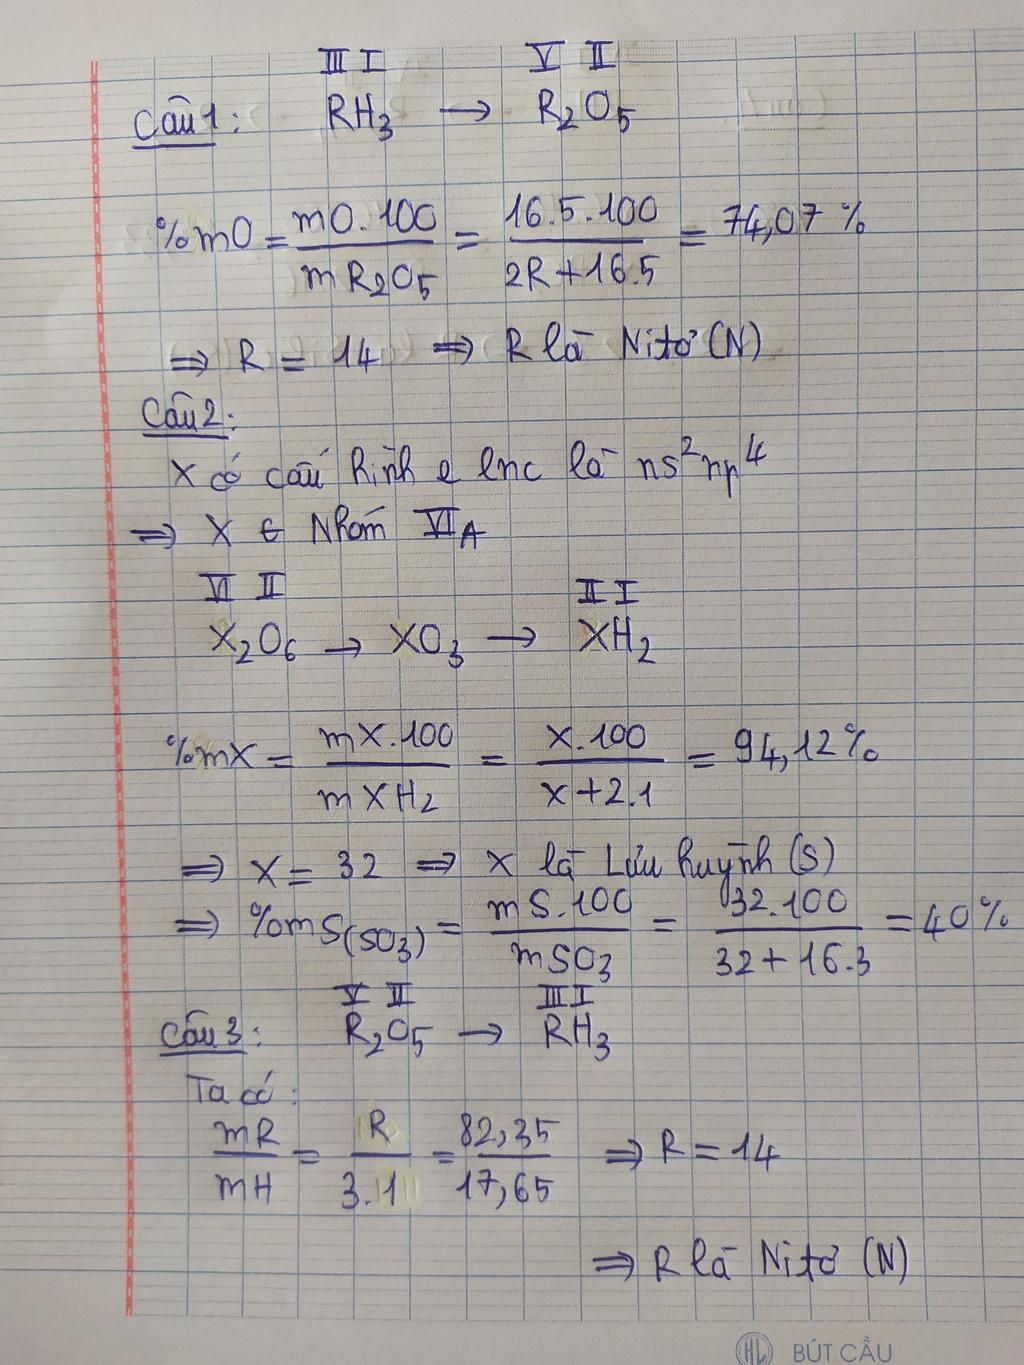 III I V II
Câu 1: RH₃ → R₂O₅
%mO = mO.100 / mR₂O₅ = 16.5.100 / 2R+16.5 = 74,07 %
⇒ R = 14 ⇒ R là Nitơ (N)
Câu 2:
X có cấu hình e lnc là ns²np⁴
⇒ X ∈ Nhóm VIA
VI II II I
X₂O₆ → XO₃ → XH₂
%mX = mX.100 / mXH₂ = X.100 / X+2.1 = 94,12%
⇒ X = 32 ⇒ X là Lưu huỳnh (S)
⇒ %mS(SO₃) = mS.100 / mSO₃ = 32.100 / 32+16.3 = 40%
V II III I
Câu 3: R₂O₅ → RH₃
Ta có:
mR / mH = R / 3.1 = 82,35 / 17,65 ⇒ R = 14
⇒ R là Nitơ (N)
HL BÚT CẦU